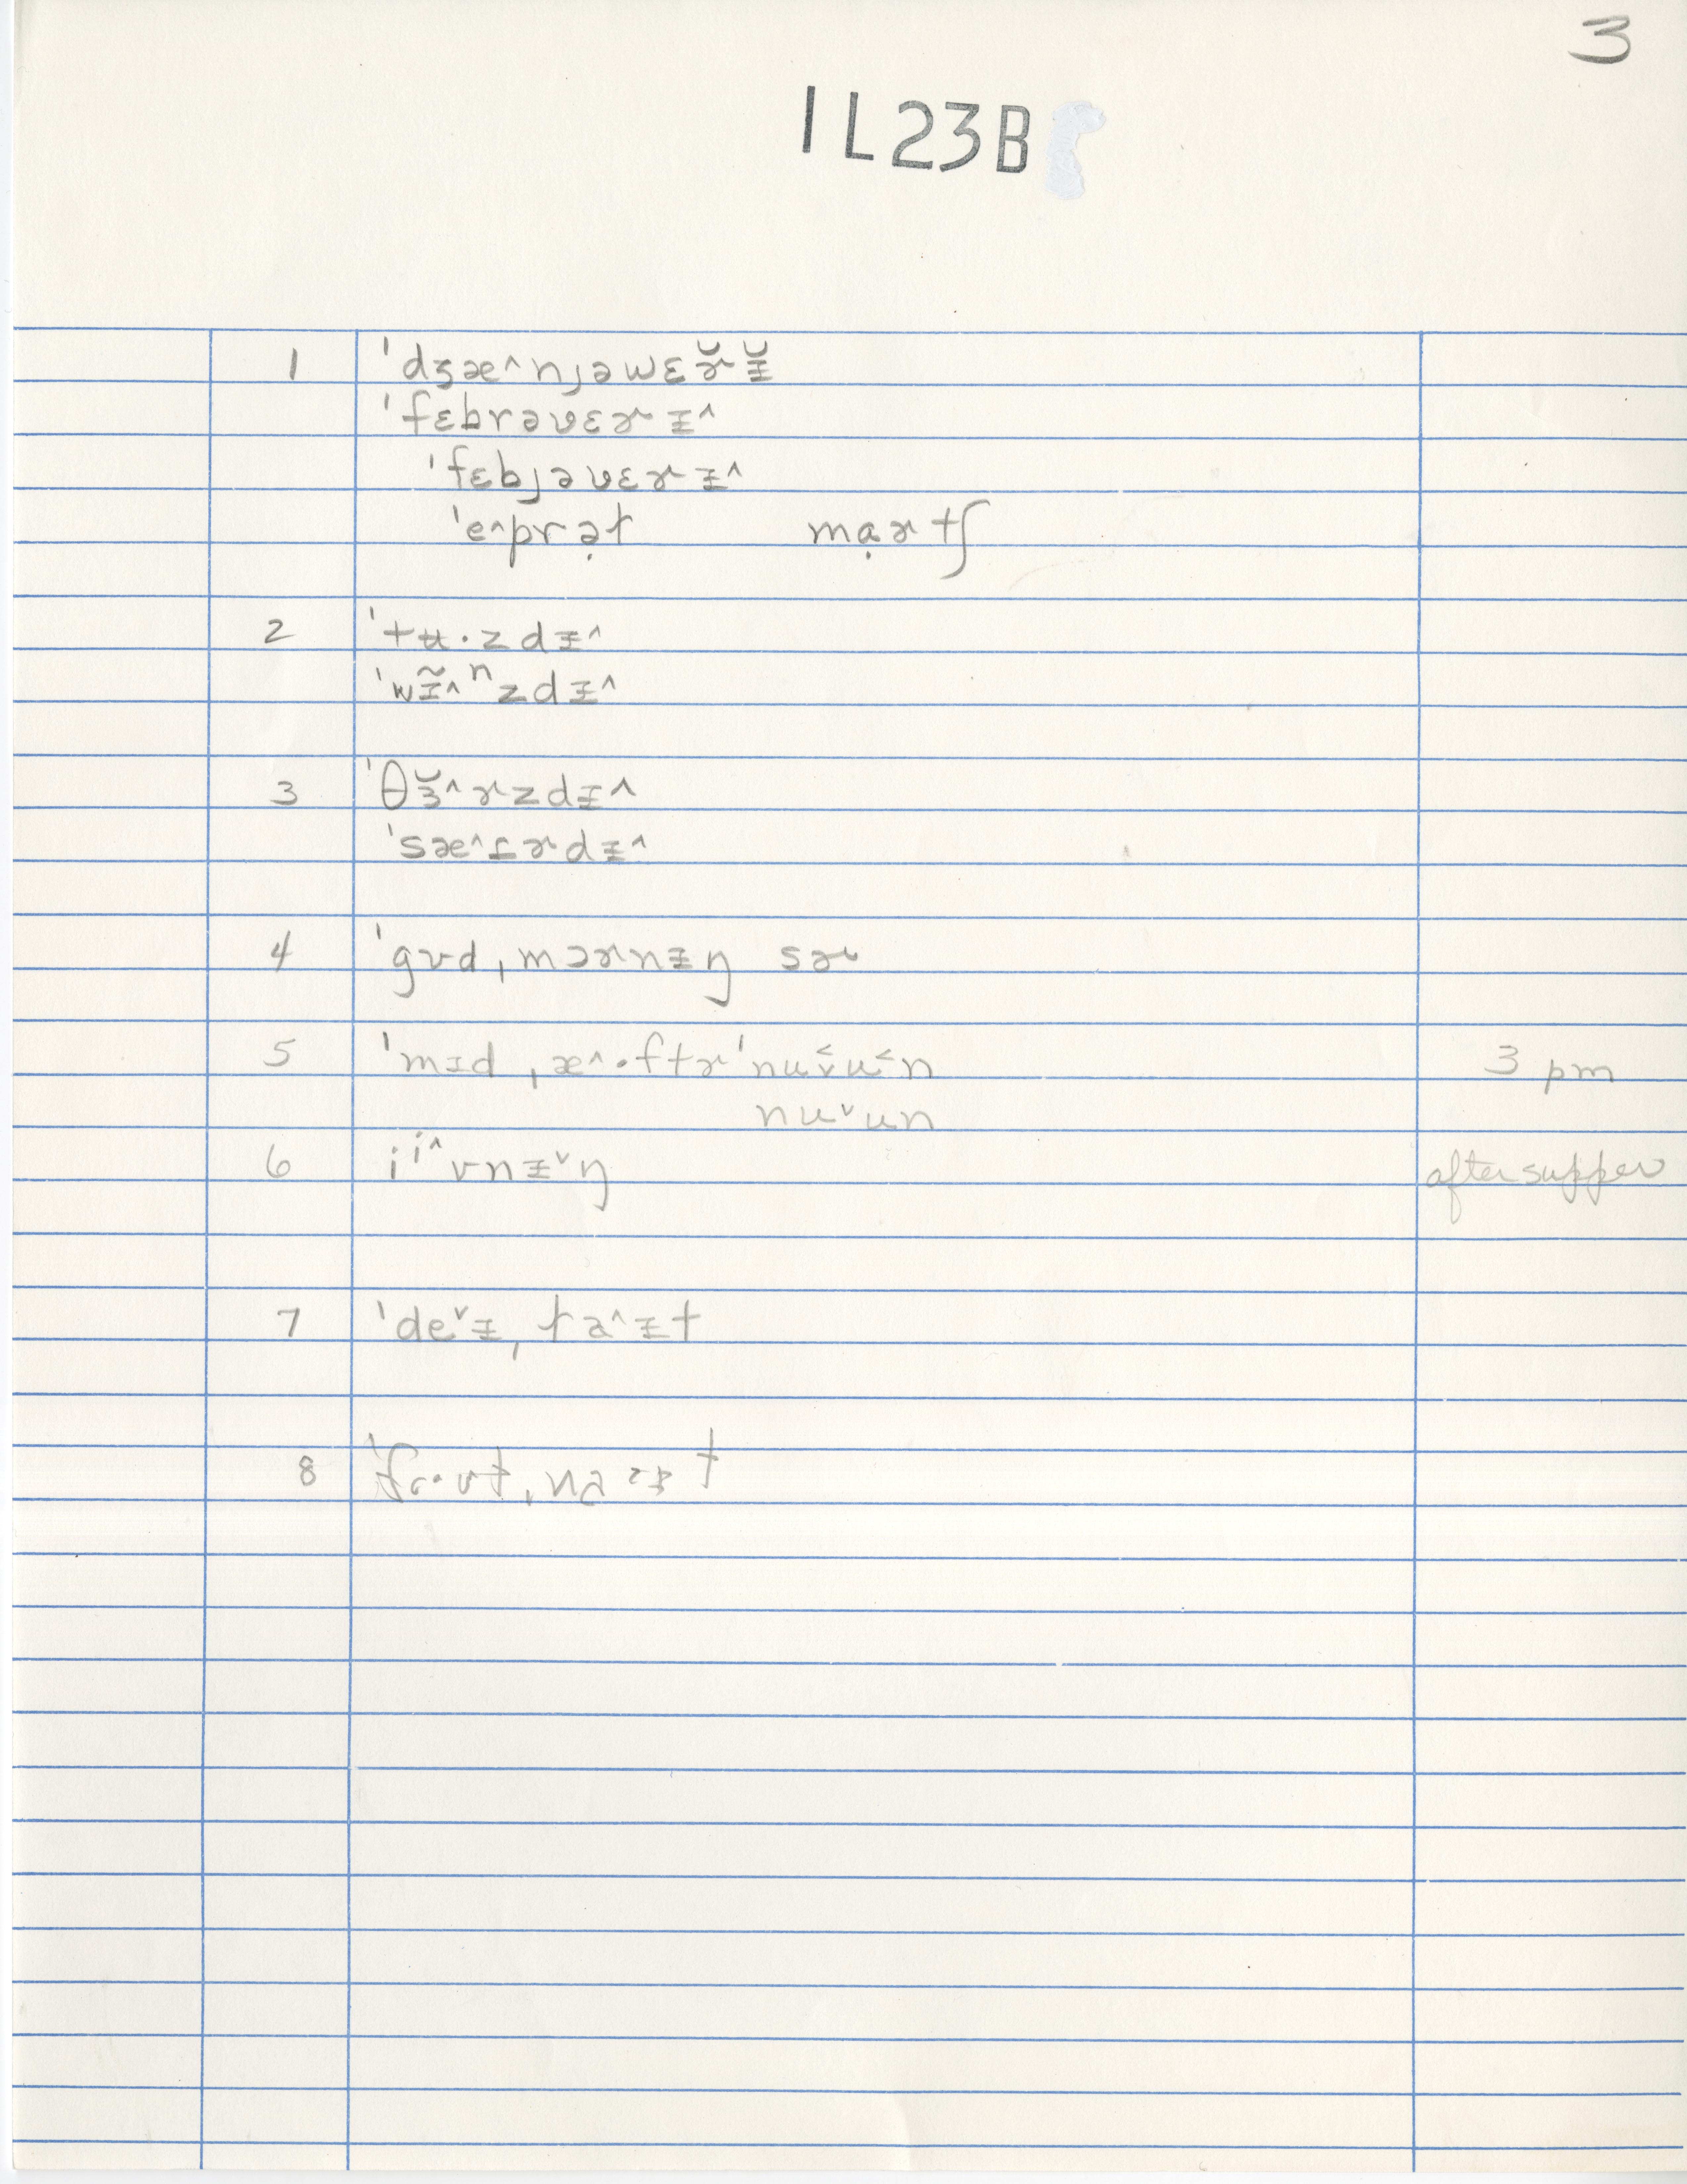 3
IL23B
1 ˈdʒæ^njəwɛɚ̆ɪ̵̆
ˈfɛbrəvɛɚɪ̵^
ˈfɛbjəvɛɚɪ̵^
ˈe^prə̣ɫ mɑ̣ɚtʃ
2 ˈtʉ·zdɪ̵^
ˈwɪ̵̃^ⁿzdɪ̵^
3 ˈθɜ̆^ɚzdɪ̵^
ˈsæ^ɾɚdɪ̵^
4 ˈgʊdˌmɔɚnɪ̵ŋ sɚ
5 ˈmɪdˌæ^·ftɚˈnu˂ˇu˂n 3 pm
nuˇun
6 iⁱ^vnɪ̵ˇŋ after supper
7 ˈdeˇɪ̵ˌɫa^ɪ̵t
8